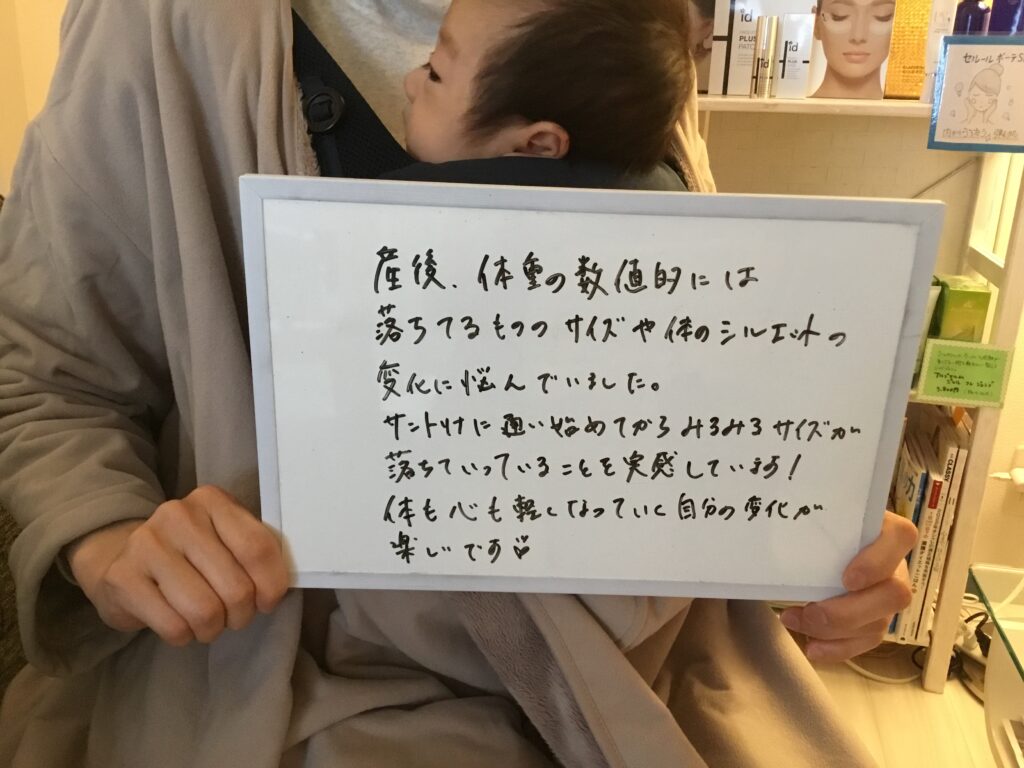 産後、体重の数値的には
落ちてるものの サイズや体のシルエットの
変化に悩んでいました。
サントリナに通い始めてからみるみるサイズが
落ちていっていることを実感しています!
体も心も軽くなっていく自分の変化が
楽しいです
id
PLUS
PATCH
id
セルール ボーテ
CLASSY